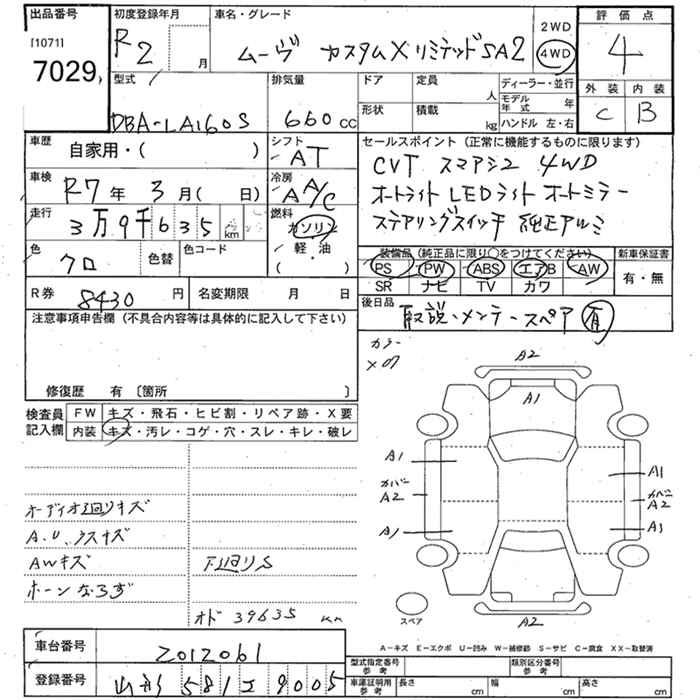 出品番号 初度登録年月 車名・グレード 2WD 評価点
[1071] R2 月 ムーヴ カスタムXリミテッドSA2 4WD 4
7029
型式 排気量 ドア 定員 ディーラー・並行 外装 内装
人 モデル年式 年 C B
DBA-LA160S 660cc 形状 積載 kg ハンドル 左・右
車歴 自家用・( ) シフト AT セールスポイント(正常に機能するものに限ります)
CVT スマアシ2 4WD
車検 R7年 3月( 日) 冷房 A A/C オートライト LEDライト オートミラー
走行 3万9千635 km 燃料 ガソリン ステアリングスイッチ 純正アルミ
軽・油
( )
色 クロ 色替 色コード 装備品(純正品に限り〇をつけてください) 新車保証書
PS PW ABS エアB AW 有・無
SR ナビ TV カワ
R券 8430円 名変期限 月 日 後日品
取説・メンテ・スペア 有
注意事項申告欄(不具合内容等は具体的に記入して下さい) カラー
X07
修復歴 有〔箇所 〕
検査員記入欄 FW キズ・飛石・ヒビ割・リペア跡・X要
内装 キズ・汚レ・コゲ・穴・スレ・キレ・破レ
A2
A1
A1 A1
カバー A2 カバー A2
A1 A1
オーディオ廻りキズ
A.U.ラスキズ
AWキズ 下廻りS
ホーンならず
オド 39635 km
スペア A2
A-キズ E-エクボ U-凹み W-補修跡 S-サビ C-腐食 XX-取替済
車台番号 2012061
登録番号 山形 581 9005
型式指定番号 参考 類別区分番号 参考
車庫証明用 参考 長さ cm 幅 cm 高さ cm